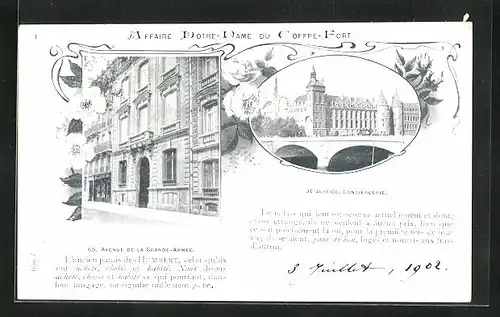 1
AFFAIRE NOTRE-DAME DU COFFRE-FORT
60, AVENUE DE LA GRANDE-ARMÉE.
L'ancien palais des HUMBERT, celui qu'ils
ont acheté, choisi et habité. Nous disons
acheté, choisi et habité ce qui pourtant, dans
leur langage, ne signifie nullement payé.
DE JUSTICE, CONCIERGERIE.
Le palais qui leur est réservé actuellement et dont,
chose étrange, ils ne veulent à aucun prix, bien que
ce soit précisément là où, pour la première fois de leur
vie, ils seraient, pour de bon, logés et nourris aux frais
3 Juillet, 1902.